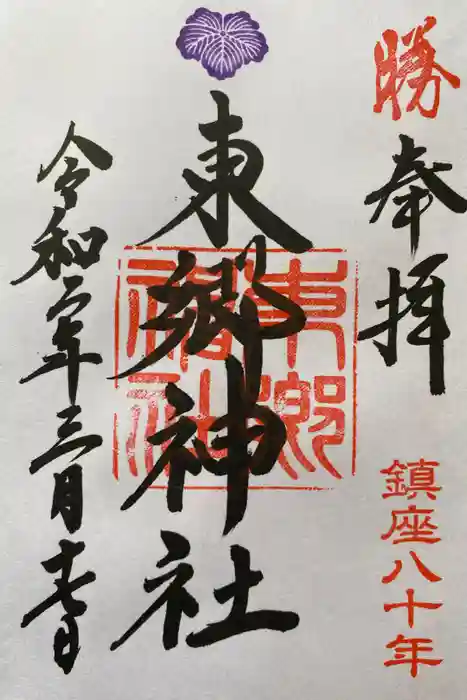 勝
奉拝
鎮座八十年
東郷神社
東郷神社
令和二年三月十七日